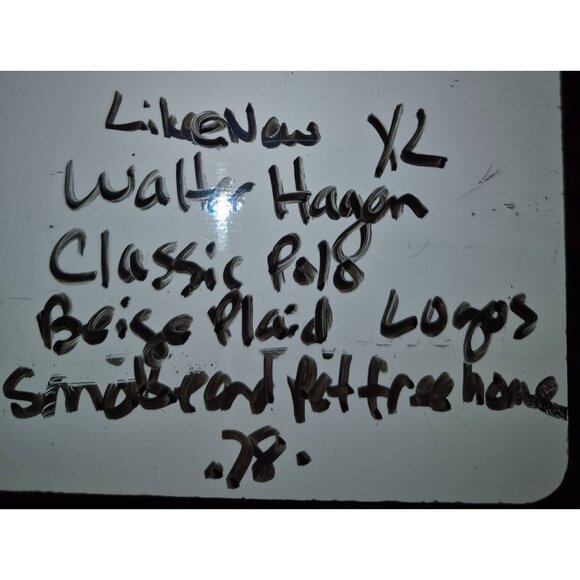 Like New XL
Walter Hagon
Classic Polo
Beige Plaid Logos
Smoke and Pet free home
.78.